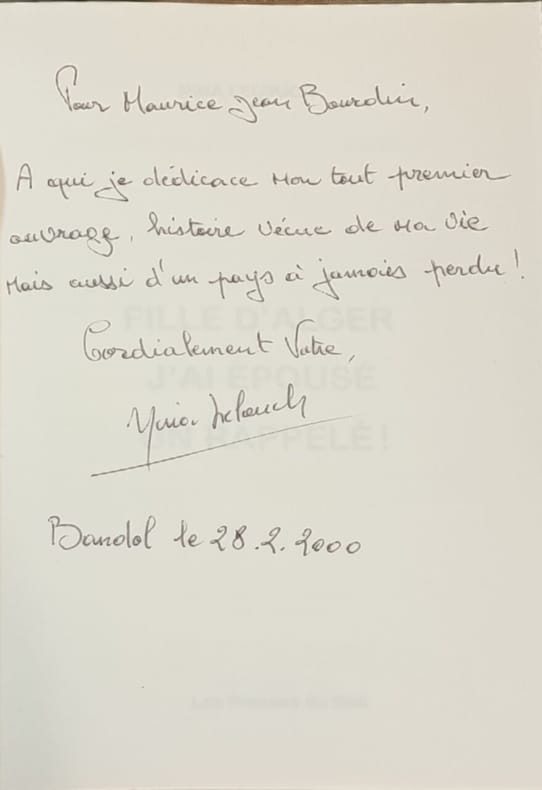 Pour Maurice Jean Bourdin,
A qui je dédicace mon tout premier
ouvrage, histoire vécue de ma vie
mais aussi d'un pays à jamais perdu !
FILLE D'ALGER
Cordialement Vôtre,
J'AI ÉPOUSÉ
UN RAPPELÉ !
Bandol le 28.2.2000